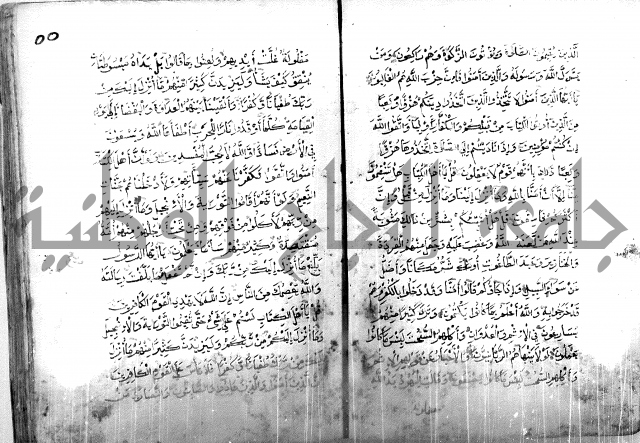 الذين يقيمون الصلوة ويؤتون الزكوة وهم راكعون ومن
يتول الله ورسوله والذين آمنوا فان حزب الله هم الغالبون
يا ايها الذين آمنوا لا تتخذوا الذين اتخذوا دينكم هزوا ولعبا
من الذين اوتوا الكتاب من قبلكم والكفار اولياء واتقوا الله
ان كنتم مؤمنين واذا ناديتم الى الصلوة اتخذوها هزوا
ولعبا ذلك بانهم قوم لا يعقلون قل يا اهل الكتاب هل تنقمون
منا الا ان آمنا بالله وما انزل الينا وما انزل من قبل وان
اكثركم فاسقون قل هل انبئكم بشر من ذلك مثوبة
عند الله من لعنه الله وغضب عليه وجعل منهم القردة
والخنازير وعبد الطاغوت اولئك شر مكانا واضل
عن سواء السبيل واذا جاؤكم قالوا آمنا وقد دخلوا بالكفر وهم
قد خرجوا به والله اعلم بما كانوا يكتمون وترى كثيرا منهم
يسارعون في الاثم والعدوان واكلهم السحت لبئس ما كانوا
يعملون لولا ينهاهم الربانيون والاحبار عن قولهم الاثم
واكلهم السحت لبئس ما كانوا يصنعون وقالت اليهود يد الله
مغلولة
٥٥
مغلولة غلت ايديهم ولعنوا بما قالوا بل يداه مبسوطتان
ينفق كيف يشاء وليزيدن كثيرا منهم ما انزل اليك من
ربك طغيانا وكفرا والقينا بينهم العداوة والبغضاء الى يوم
القيامة كلما اوقدوا نارا للحرب اطفأها الله ويسعون
في الارض فسادا والله لا يحب المفسدين ولو ان اهل الكتاب
آمنوا واتقوا لكفرنا عنهم سيئاتهم ولادخلناهم جنات
النعيم ولو انهم اقاموا التورية والانجيل وما انزل اليهم
من ربهم لاكلوا من فوقهم ومن تحت ارجلهم منهم امة
مقتصدة وكثير منهم ساء ما يعملون يا ايها الرسول
بلغ ما انزل اليك من ربك وان لم تفعل فما بلغت رسالته
والله يعصمك من الناس ان الله لا يهدي القوم الكافرين
قل يا اهل الكتاب لستم على شيء حتى تقيموا التورية والانجيل
وما انزل اليكم من ربكم وليزيدن كثيرا منهم ما انزل
اليك من ربك طغيانا وكفرا فلا تأس على القوم الكافرين
ان الذين آمنوا والذين هادوا والصابئون والنصارى من
جامعة النجاح الوطنية